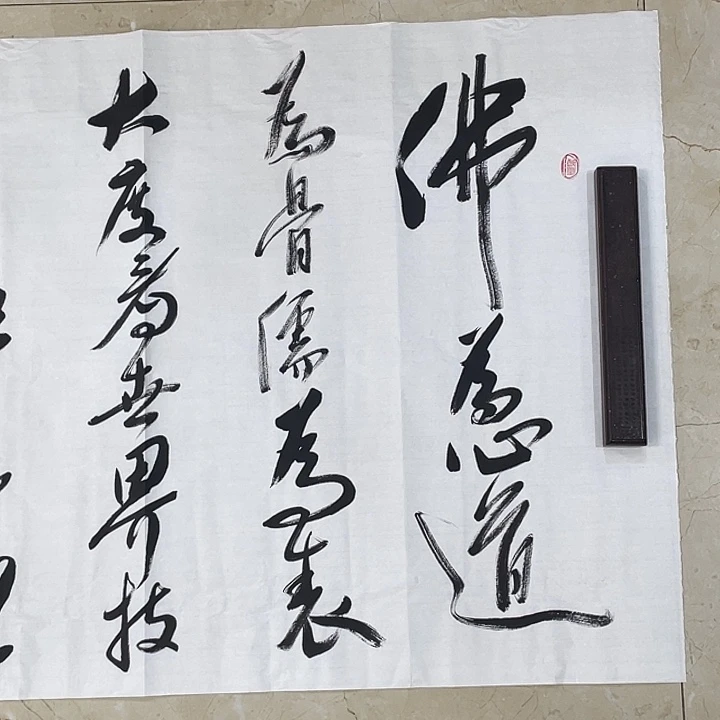 佛為心道
為骨儒為表
大度看世界技